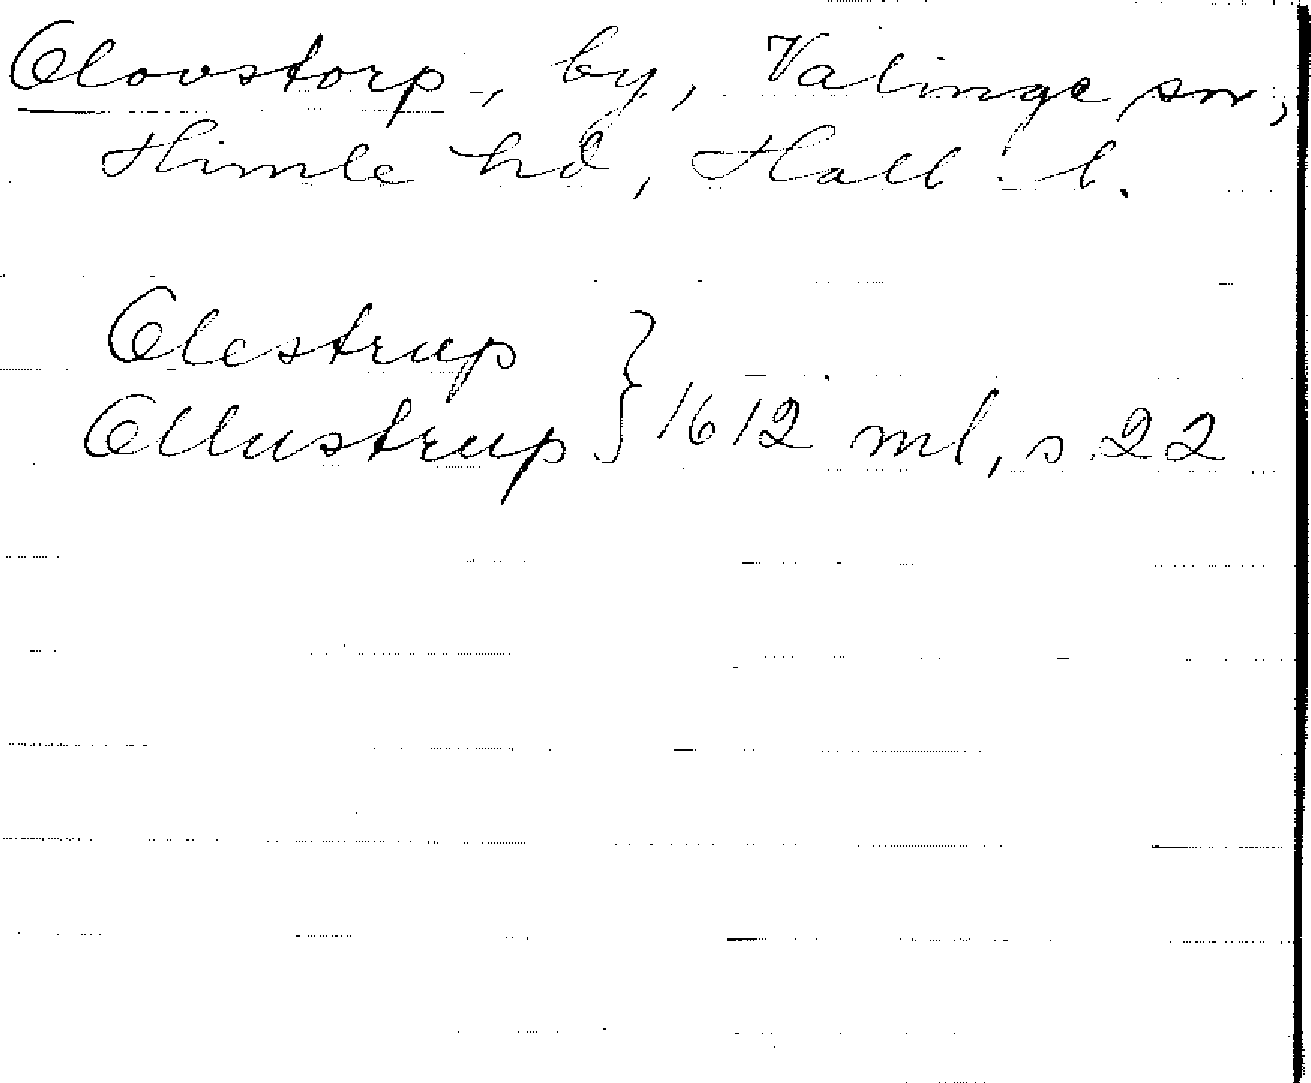 Olovstorp, by, Valinge sn,
Himle hd, Hall. l.
Olestrup
Ollustrup } 1612 ml, s 22